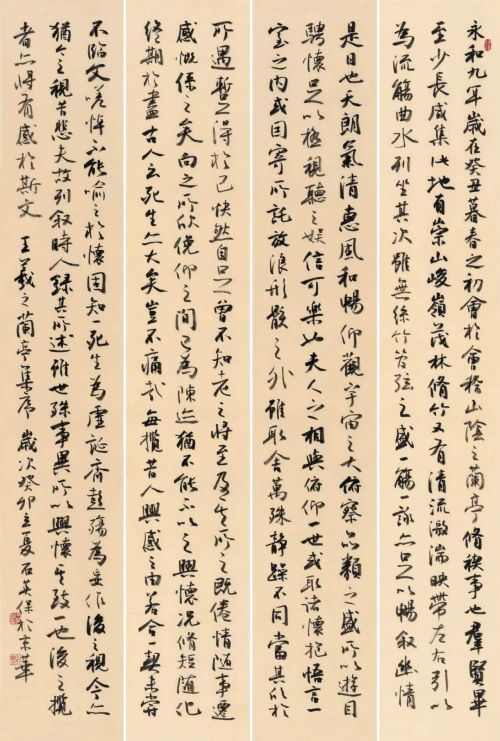 永和九年歲在癸丑暮春之初會於會稽山陰之蘭亭脩稧事也羣賢畢
至少長咸集此地有崇山峻嶺茂林脩竹又有清流激湍映帶左右引以
為流觴曲水列坐其次雖無絲竹管弦之盛一觴一詠亦足以暢敘幽情
是日也天朗氣清惠風和暢仰觀宇宙之大俯察品類之盛所以遊目
騁懷足以極視聽之娛信可樂也夫人之相與俯仰一世或取諸懷抱悟言一
室之內或因寄所託放浪形骸之外雖取舍萬殊靜躁不同當其欣於
所遇暫得於己快然自足曾不知老之將至及其所之既倦情隨事遷
感慨係之矣向之所欣俛仰之間已為陳迹猶不能不以之興懷況脩短隨化
終期於盡古人云死生亦大矣豈不痛哉每攬昔人興感之由若合一契未嘗
不臨文嗟悼不能喻之於懷固知一死生為虛誕齊彭殤為妄作後之視今亦
猶今之視昔悲夫故列敘時人錄其所述雖世殊事異所以興懷其致一也後之攬
者亦將有感於斯文 王羲之蘭亭集序 歲次癸卯立夏石英保於京華